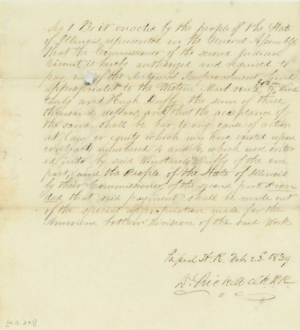 Sec 1 Be it enacted by the people of the State
of Illinois, represented in the General Assembly
That the Commissioner of the second judicial
Circuit is hereby authorized and required to
pay out of the Internal Improvement fund
appropriated to the Western Mail route to
and Hugh Duffy, the sum of three
thousand dollars, and that the acceptance of
the same shall be in bar of any cause of action
at law or equity which may have existed upon
contracts numbered 4 and 6 which were enter-
ed into by said Duffy of the one
part, and the People of the State of Illinois
by their Commissioner of the second part Provi-
ded, that said payment shall be made out
of the special appropriation made for the
American bottom division of the said Work
Passed H. R. Feb 23d 1839
D. Prickett Clk H R